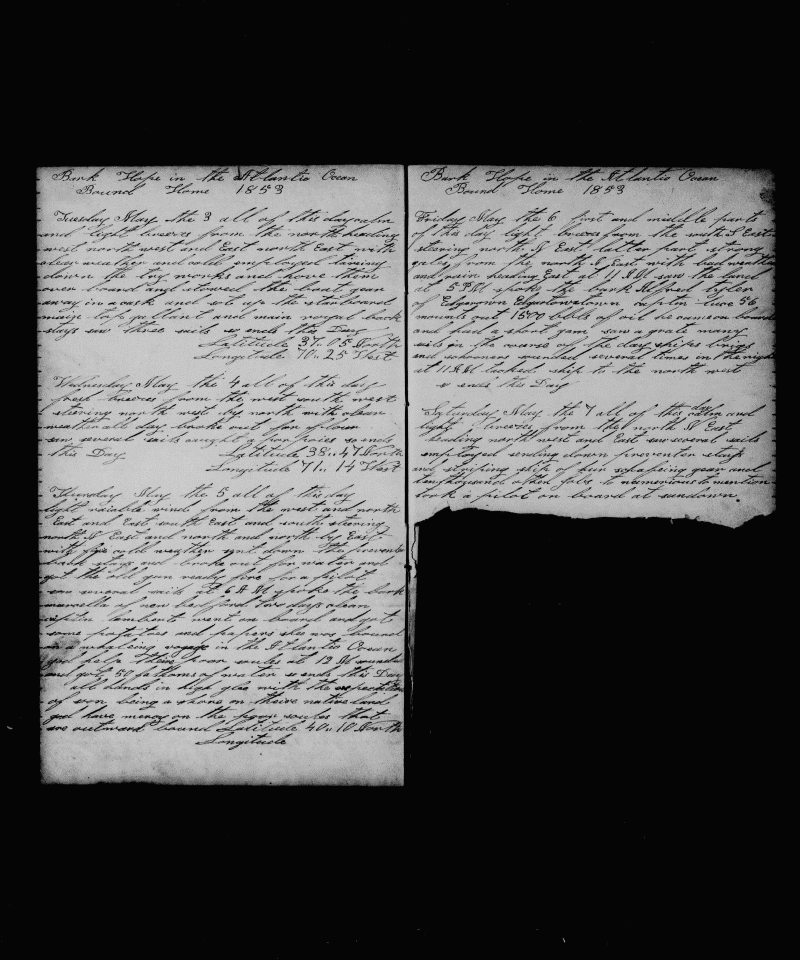 Bark Hope in the Atlantic Ocean
Bound Home 1853
Tuesday May the 3 all of this day calm
and light breezes from the north heading
west north west and East north East with
clear weather and cold employed tearing
down the try works and hove them
over board and stowed the boat gear
away in a cask and set up the starboard
main top gallant and main royal back
stays saw three sails so ends this Day
Latitude 37.05 North
Longitude 70.25 West
Wednesday May the 4 all of this day
fresh breezes from the west south west
steering north west by north with clear
weather all day broke out for flour
saw several sails caught a porpoise so ends
this Day Latitude 38..47 North
Longitude 71..14 West
Thursday May the 5 all of this day
light vaiable winds from the west and north
East and East south East and south steering
north N East and north and north by East
with fine cold weather got down the preventer
back stays and broke out for water and
got the old gun ready fire for a pilot
saw several sails at 6 A M spoke the bark
of new bedford two days clean
captn lambert went on board and got
some potatoes and papers she was bound
on a whaleing voyage in the Atlantic Ocean
god help their poor soules at 12 M sounded
and got 50 fathoms of water so ends this Day
all hands in high glee with the expectation
of soon being a shore on theire native land
god have mercy on the poor soules that
are outward bound Latitude 40..10 North
Longitude
Bark Hope in the Atlantic Ocean
Bound Home 1853
Friday May the 6 first and middle parts
of this day light breezes from the south S East
steering north N East latter part strong
gales from the north N East with bad weather
and rain heading East at 11 A M saw the land
at 5 PM spoke the bark Alfred tyler
of Edgarown Edgartowntown captn luce 56
mounts out 1500 bbls of oil he came on board
and had a short gam saw a grate many
sails in the course of the day ships brigs
and schooners sounded several times in the night
at 11 A M tacked ship to the north west
so ends this Day
Saturday May the 7 all of this day calm and
light breezes from the north N East
heading north west and East saw several sails
employed sending down preventer stays
and striping ship of hur whaleing gear and
ten thousand other jobs to numerious to mention
took a pilot on board at sundown.